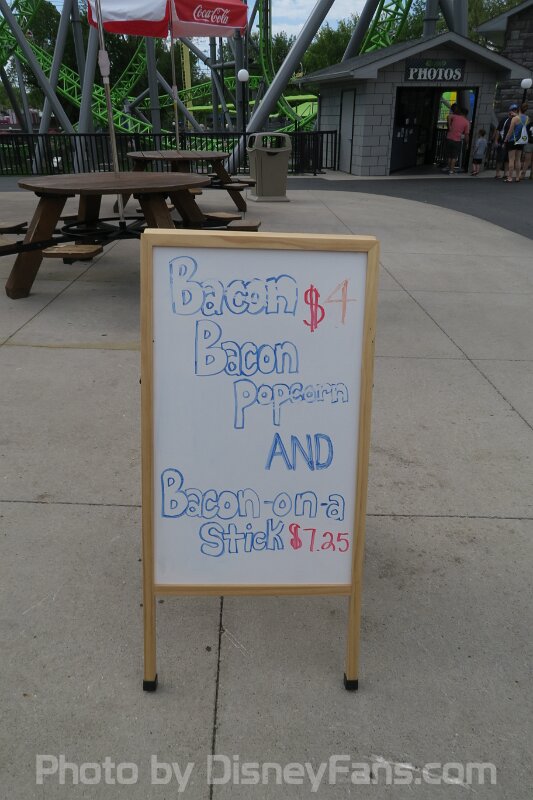 Coca-Cola
PHOTOS
Bacon $4
Bacon
Popcorn
AND
Bacon-on-a
Stick $7.25
Photo by DisneyFans.com